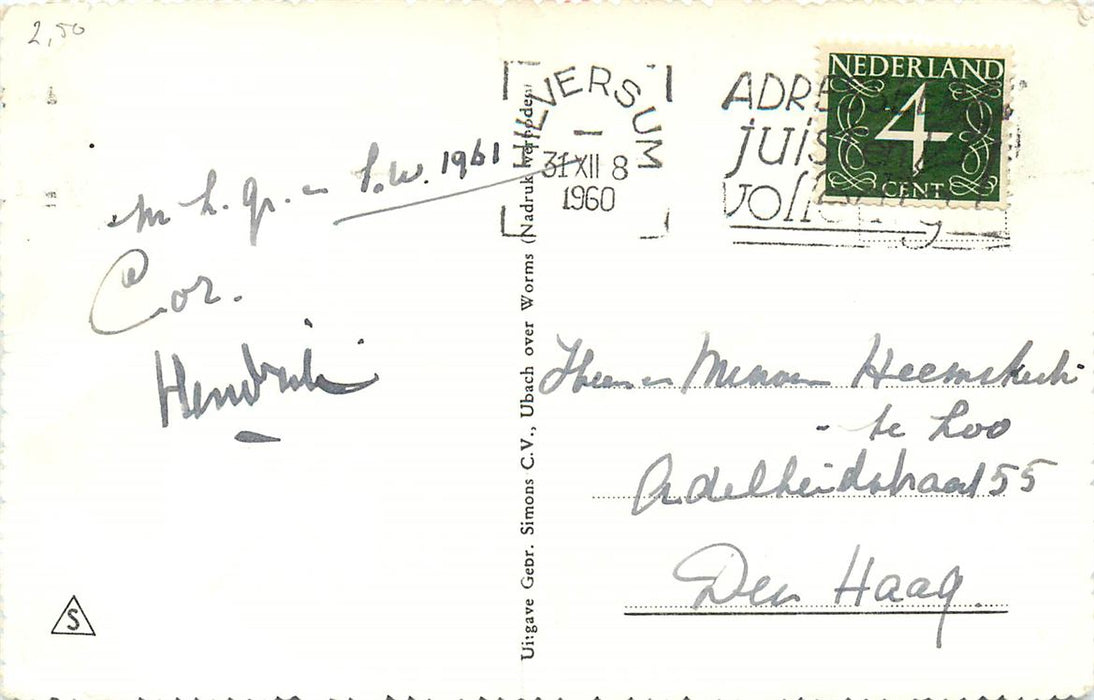 2,50
m h. gr. en P.W. 1961
Cor.
Hendrik
HILVERSUM
31 XII 8
1960
ADRES
juis
volledig
NEDERLAND
4
CENT
Uitgave Gebr. Simons C.V., Ubach over Worms (Nadruk verboden)
Heemskerk
- te Loo
Adelheidstraat 55
Den Haag.
S